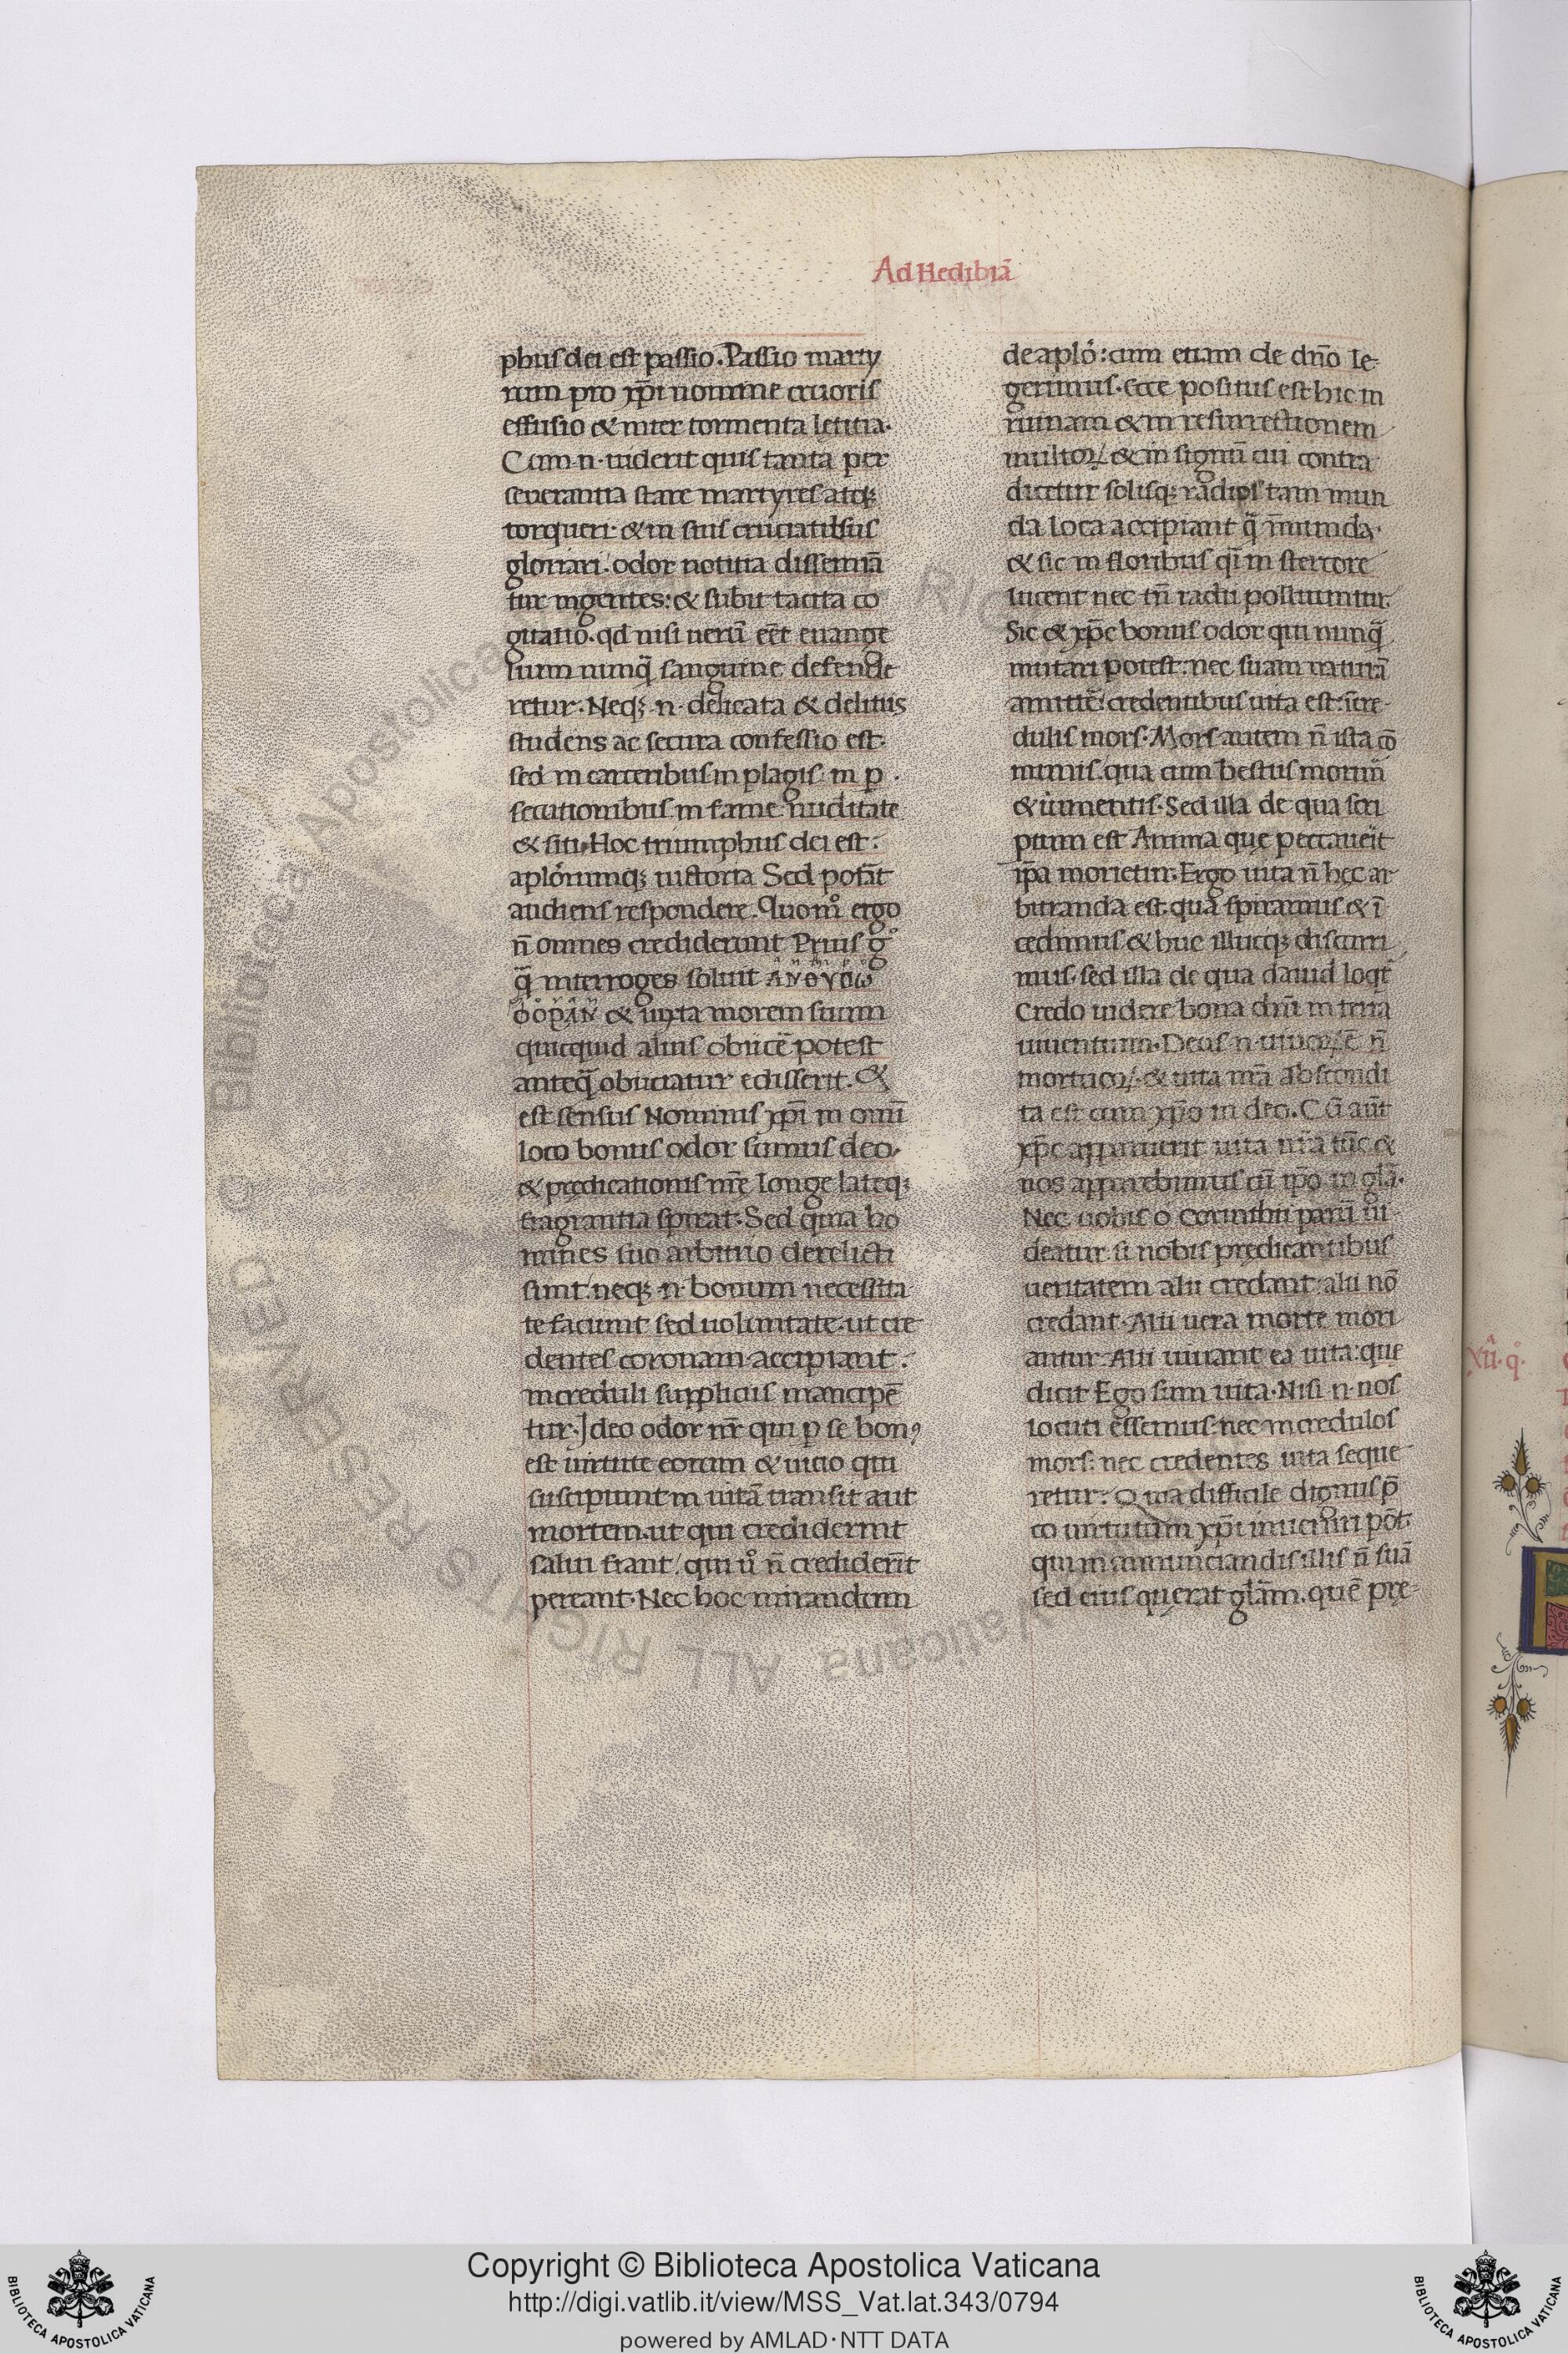 Ad Hedibiā
phus dei est passio. Passio marty
rum pro xp̄i nomine cruoris
effusio & inter tormenta letitia.
Cum .n. uiderit quis tanta per
seuerantia stare martyres atq;
torqueri. & in suis cruciatibus
gloriari: odor notitia dissemīa
tur in gentes: & subit tacita co
gitatio. qd nisi uerū eēt euange
lium nunq̄ sanguine defende
retur. Neq; .n. delicata & delitiis
studens ac secura confessio est.
sed in carceribus in plagis. in p̱
secutionibus in fame nuditate
& siti. Hoc triumphus dei est:
aplōrumq; uictoria Sed potāt
audiens respondere. Quom̊ ergo
n̄ omnes crediderunt Prius g̊
q̄ interroges soluit
& iuxta morem suum
quicquid alius obiicē potest
anteq̄ obiiciatur edisserit. &
est sensus Nominis xp̄i in omī
loco bonus odor sumus deo.
& prędicationis nr̄e longe lateq;
fragrantia spirat. Sed quia ho
mines suo arbitrio derelicti
sunt. neq; .n. bonum necessita
te faciunt sed uoluntate. ut cre
dentes coronam accipiant:
increduli suppliciis mancipē
tur. Ideo odor nr̄ qui p̱ se bonꝰ
est uirtute eorum & uicio qui
suscipiunt in uitā transit aut
mortem. ut qui crediderint
salui fiant / qui ů n̄ crediderīt
pereant. Nec hoc mirandum
de aplō: cum etiam de dn̄o le
gerimus. Ecce positus est hic in
ruinam & in resurrectionem
multoꝝ & in signū cui contra
dicetur solisq; radios tam mun
da loca accipiant q̄ īmunda.
& sic in floribus qī in stercore
lucent nec tn̄ radii polluuntur.
Sic & xp̄c bonus odor qui nunq̄
mutari potest. nec suam naturā
amittē: credentibus uita est: īcre
dulis mors. Mors autem n̄ ista cō
munis. qua cum bestiis morimr̄
& iumentis. Sed illa de qua scri
ptum est Anima quę peccauerit
ip̄a morietur. Ergo uita n̄ hęc ar
bitranda est. qua spiramus & ī
cedimus & huc illucq; discurri
mus. sed illa de qua dauid loqt̄
Credo uidere bona dn̄i in terra
uiuentium. Deus .n. uiuoꝝ ē n̄
mortuoꝝ. & uita nr̄a abscondi
ta est cum xp̄o in deo. Cū aūt
xp̄c apparuerit uita nr̄a tūc &
nos apparebimus cū ip̄o in glā.
Nec uobis o Corinthii parū ui
deatur. si nobis prędicantibus
ueritatem alii credant. alii nō
credant. Alii uera morte mori
antur. Alii uiuant ea uita: quę
dicit Ego sum uita. Nisi .n. nos
locuti essemus. nec incredulos
mors: nec credentes uita seque
retur. Quia difficile dignus p̄
co uirtutum xp̄i inueniri pōt.
qui in annunciandis illis n̄ suā
sed eius quęrat glām. quē pre-
xii. q̊.
RESERVED © Biblioteca Apostolica Vaticana ALL RIGHTS
Copyright © Biblioteca Apostolica Vaticana
http://digi.vatlib.it/view/MSS_Vat.lat.343/0794
powered by AMLAD·NTT DATA
BIBLIOTECA APOSTOLICA VATICANA
BIBLIOTECA APOSTOLICA VATICANA